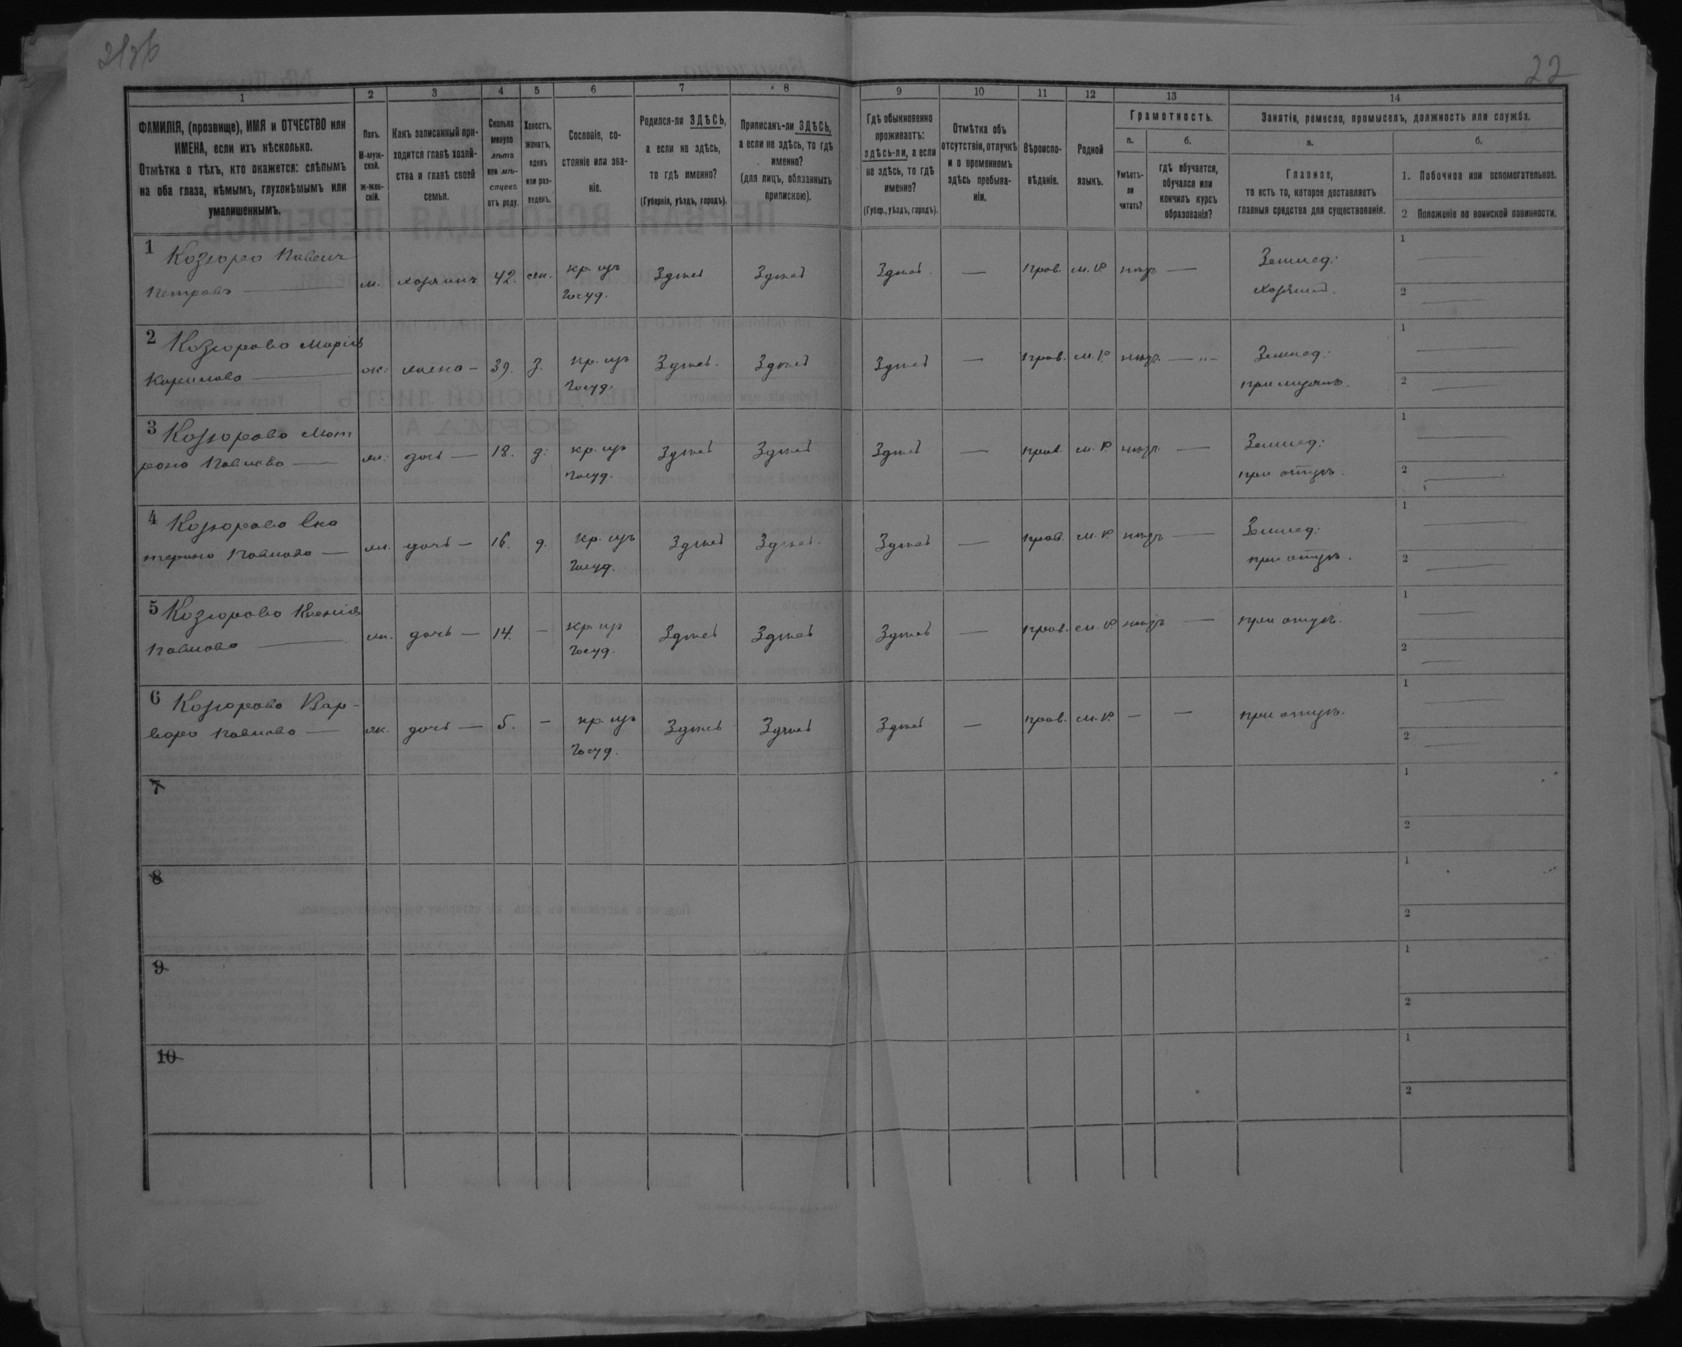 22
1 2 3 4 5 6 7 8 9 10 11 12 13 14
ФАМИЛІЯ, (прозвище), ИМЯ и ОТЧЕСТВО или
ИМЕНА, если ихъ нѣсколько.
Отмѣтка о тѣхъ, кто окажется: слѣпымъ
на оба глаза, нѣмымъ, глухонѣмымъ или
умалишеннымъ.
Полъ.
М-муж-
ской.
ж-жен-
скій.
Какъ записанный при-
ходится главѣ хозяй-
ства и главѣ своей
семьи.
Сколько
минуло
лѣтъ
или мѣ-
сяцевъ
отъ роду.
Холостъ,
женатъ,
вдовъ
или раз-
веденъ.
Сословіе, со-
стояніе или зва-
ніе.
Родился-ли ЗДѢСЬ,
а если не здѣсь,
то гдѣ именно?
(Губернія, уѣздъ, городъ).
Приписанъ-ли ЗДѢСЬ,
а если не здѣсь, то гдѣ
именно?
(для лицъ, обязанныхъ
припискою).
Гдѣ обыкновенно
проживаетъ:
здѣсь-ли, а если
не здѣсь, то гдѣ
именно?
(Губер., уѣздъ, городъ).
Отмѣтка объ
отсутствіи, отлучкѣ
и о временномъ
здѣсь пребыва-
ніи.
Вѣроиспо-
вѣданіе.
Родной
языкъ.
Грамотность.
а.
Умѣетъ-
ли
читать?
б.
гдѣ обучается,
обучался или
кончилъ курсъ
образованія?
Занятіе, ремесло, промыселъ, должность или служба.
а.
Главное,
то есть то, которое доставляетъ
главныя средства для существованія.
б.
1. Побочное или вспомогательное.
2 Положеніе по воинской повинности.
1 Козюра Павелъ
Петровъ —
м. хозяинъ 42. кр. изъ
Госуд.
Здѣсь Здѣсь Здѣсь — прав. м. р. —
Землед:
хозяинъ.
1 —
2 —
2 Козюрова Марія
—
ж: жена — 39. з. кр. изъ
Госуд.
Здѣсь. Здѣсь Здѣсь — прав. м. р. — „ —
Землед:
1 —
2 —
3 Козюрова Мат
рона Павлова —
ж: дочь — 18. д: кр. изъ
Госуд.
Здѣсь Здѣсь Здѣсь — прав. м. р. —
Землед:
при отцѣ.
1 —
2 —
4 Козюрова Ека
терина Павлова —
ж. дочь — 16. д. кр. изъ
Госуд.
Здѣсь Здѣсь. Здѣсь — прав. м. р. —
Землед:
при отцѣ.
1 —
2 —
5 Козюрова Ксенія
Павлова —
ж. дочь — 14. — кр. изъ
Госуд.
Здѣсь Здѣсь Здѣсь — прав. м. р. —
при отцѣ.
1 —
2 —
6 Козюрова Вар-
вара Павлова —
ж. дочь — 5. — кр. изъ
Госуд.
Здѣсь Здѣсь Здѣсь — прав. м. р. — —
при отцѣ.
1 —
2 —
7
1
2
8
1
2
9
1
2
10
1
2